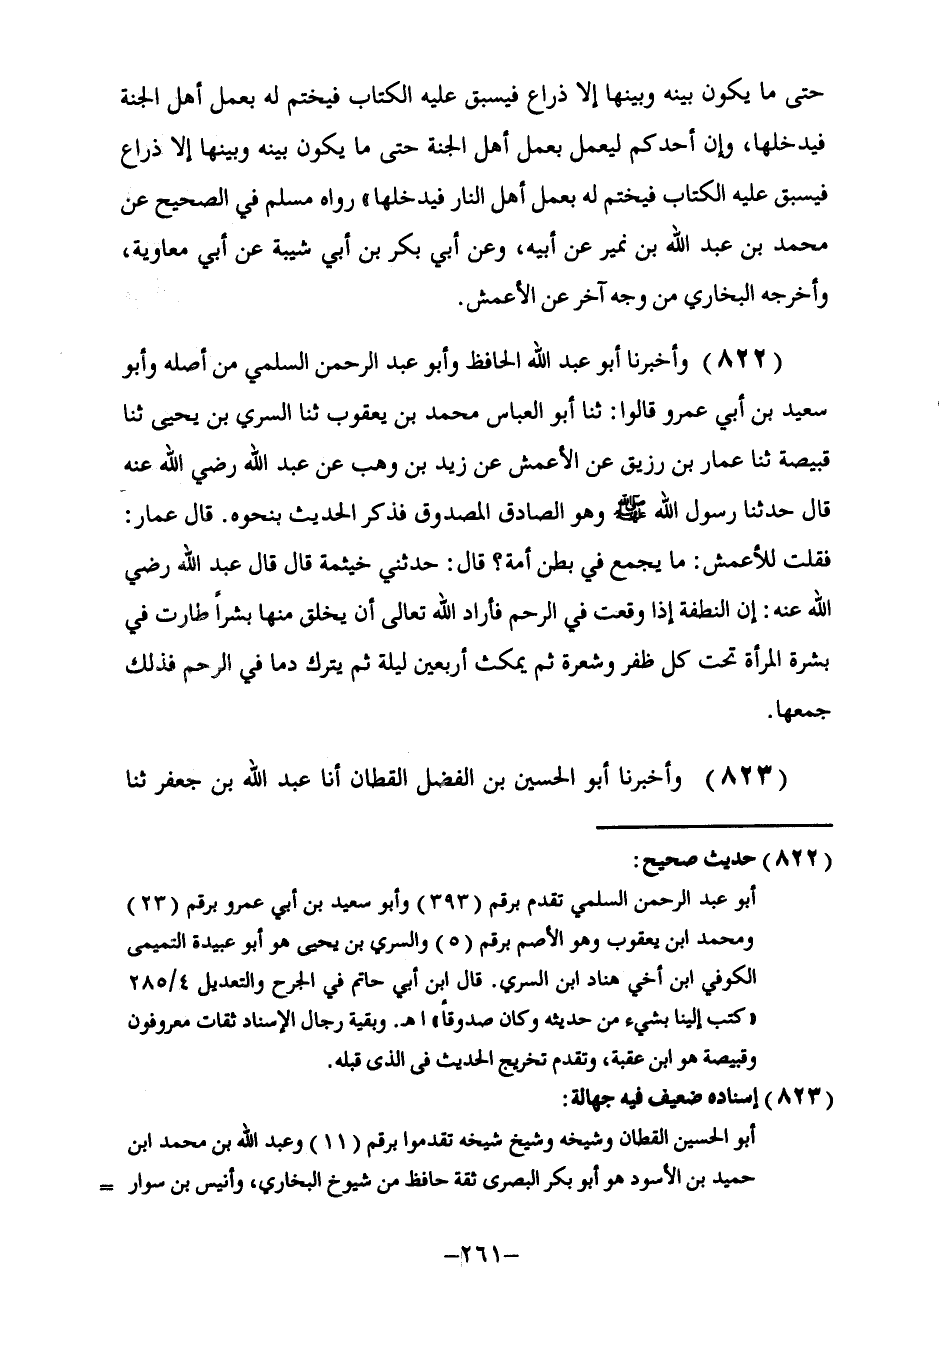 حتى ما يكون بينه وبينها إلا ذراع فيسبق عليه الكتاب فيختم له بعمل أهل الجنة
فيدخلها، وإن أحدكم ليعمل بعمل أهل الجنة حتى ما يكون بينه وبينها إلا ذراع
فيسبق عليه الكتاب فيختم له بعمل أهل النار فيدخلها» رواه مسلم في الصحيح عن
محمد بن عبد الله بن نمير عن أبيه، وعن أبي بكر بن أبي شيبة عن أبي معاوية،
وأخرجه البخاري من وجه آخر عن الأعمش.
(٨٢٢) وأخبرنا أبو عبد الله الحافظ وأبو عبد الرحمن السلمي من أصله وأبو
سعيد بن أبي عمرو قالوا: ثنا أبو العباس محمد بن يعقوب ثنا السري بن يحيى ثنا
قبيصة ثنا عمار بن رزيق عن الأعمش عن زيد بن وهب عن عبد الله رضي الله عنه
قال حدثنا رسول الله ﷺ وهو الصادق المصدوق فذكر الحديث بنحوه. قال عمار:
فقلت للأعمش: ما يجمع في بطن أمة؟ قال: حدثني خيثمة قال قال عبد الله رضي
الله عنه: إن النطفة إذا وقعت في الرحم فأراد الله تعالى أن يخلق منها بشراً طارت في
بشرة المرأة تحت كل ظفر وشعرة ثم يمكث أربعين ليلة ثم يترك دما في الرحم فذلك
جمعها.
(٨٢٣) وأخبرنا أبو الحسين بن الفضل القطان أنا عبد الله بن جعفر ثنا
(٨٢٢) حديث صحيح:
أبو عبد الرحمن السلمي تقدم برقم (٣٩٣) وأبو سعيد بن أبي عمرو برقم (٢٣)
ومحمد ابن يعقوب وهو الأصم برقم (٥) والسري بن يحيى هو أبو عبيدة التميمى
الكوفي ابن أخي هناد ابن السري. قال ابن أبي حاتم في الجرح والتعديل ٢٨٥/٤
«كتب إلينا بشيء من حديثه وكان صدوقاً» ا هـ. وبقية رجال الإسناد ثقات معروفون
وقبيصة هو ابن عقبة، وتقدم تخريج الحديث فى الذى قبله.
(٨٢٣) إسناده ضعيف فيه جهالة:
أبو الحسين القطان وشيخه وشيخ شيخه تقدموا برقم (١١) وعبد الله بن محمد ابن
حميد بن الأسود هو أبو بكر البصرى ثقة حافظ من شيوخ البخاري، وأنيس بن سوار =
–٢٦١–